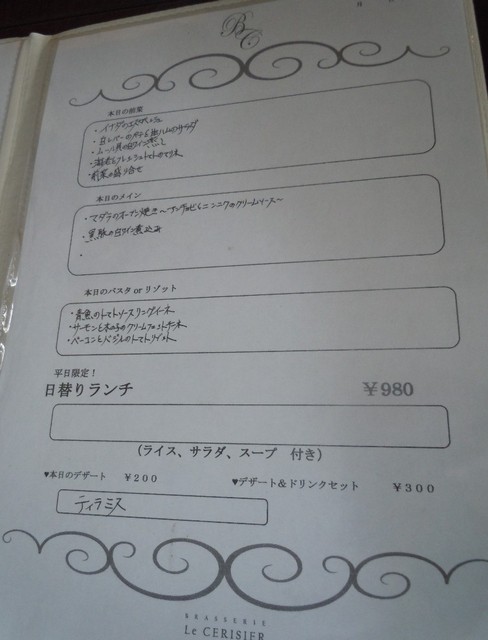 月
BC
本日の前菜
・イナダのエスカベッシュ
・白レバーのパテと生ハムのサラダ
・ムール貝の白ワイン蒸し
・海老とフレッシュトマトの
前菜の盛り合せ
本日のメイン
・マダラのオーブン焼き～アンチョビとニンニクのクリームソース～
・黒豚の白ワイン煮込み
・
本日のパスタ or リゾット
・青魚のトマトソース リングイーネ
・サーモンと木の子のクリーム
・ベーコンとバジルのトマトリゾット
平日限定!
日替りランチ ￥980
(ライス、サラダ、スープ 付き)
♥本日のデザート ￥200
♥デザート&ドリンクセット ￥300
ティラミス
BRASSERIE
LE CERISIER